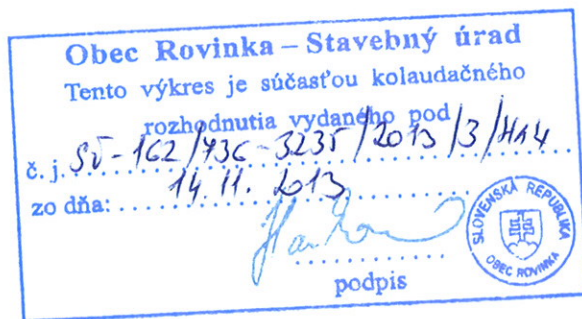 Obec Rovinka – Stavebný úrad
Tento výkres je súčasťou kolaudačného
rozhodnutia vydaného pod
č. j. SÚ-162/736-3235/2013/3/HA4
zo dňa: 14. 11. 2013
podpis
SLOVENSKÁ REPUBLIKA
OBEC ROVINKA